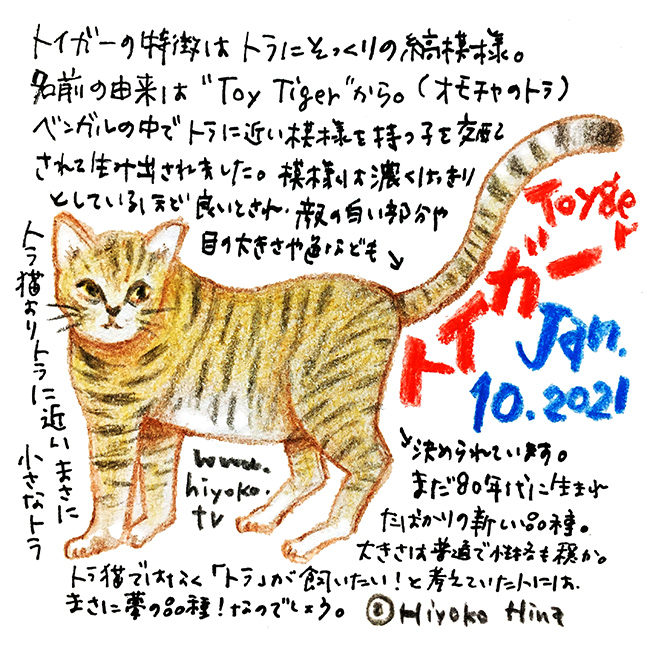 トイガーの特徴はトラにそっくりの縞模様。
名前の由来は"Toy Tiger"から。(オモチャのトラ)
ベンガルの中でトラに近い模様を持つ子を交配
されて生み出されました。模様は濃くはっきり
としているほど良いとされ、顔の白い部分や
目の大きさや色なども
↘決められています。
まだ80年代に生まれ
たばかりの新しい品種。
大きさは普通で性格も穏か。
トラ猫ではなく「トラ」が飼いたい!と考えていた人には、
まさに夢の品種!なのでしょう。
トラ猫よりトラに近いまさに
小さなトラ
Toyger
トイガー
Jan.
10.2021
www.
hiyoko.
tv
Hiyoko Hina